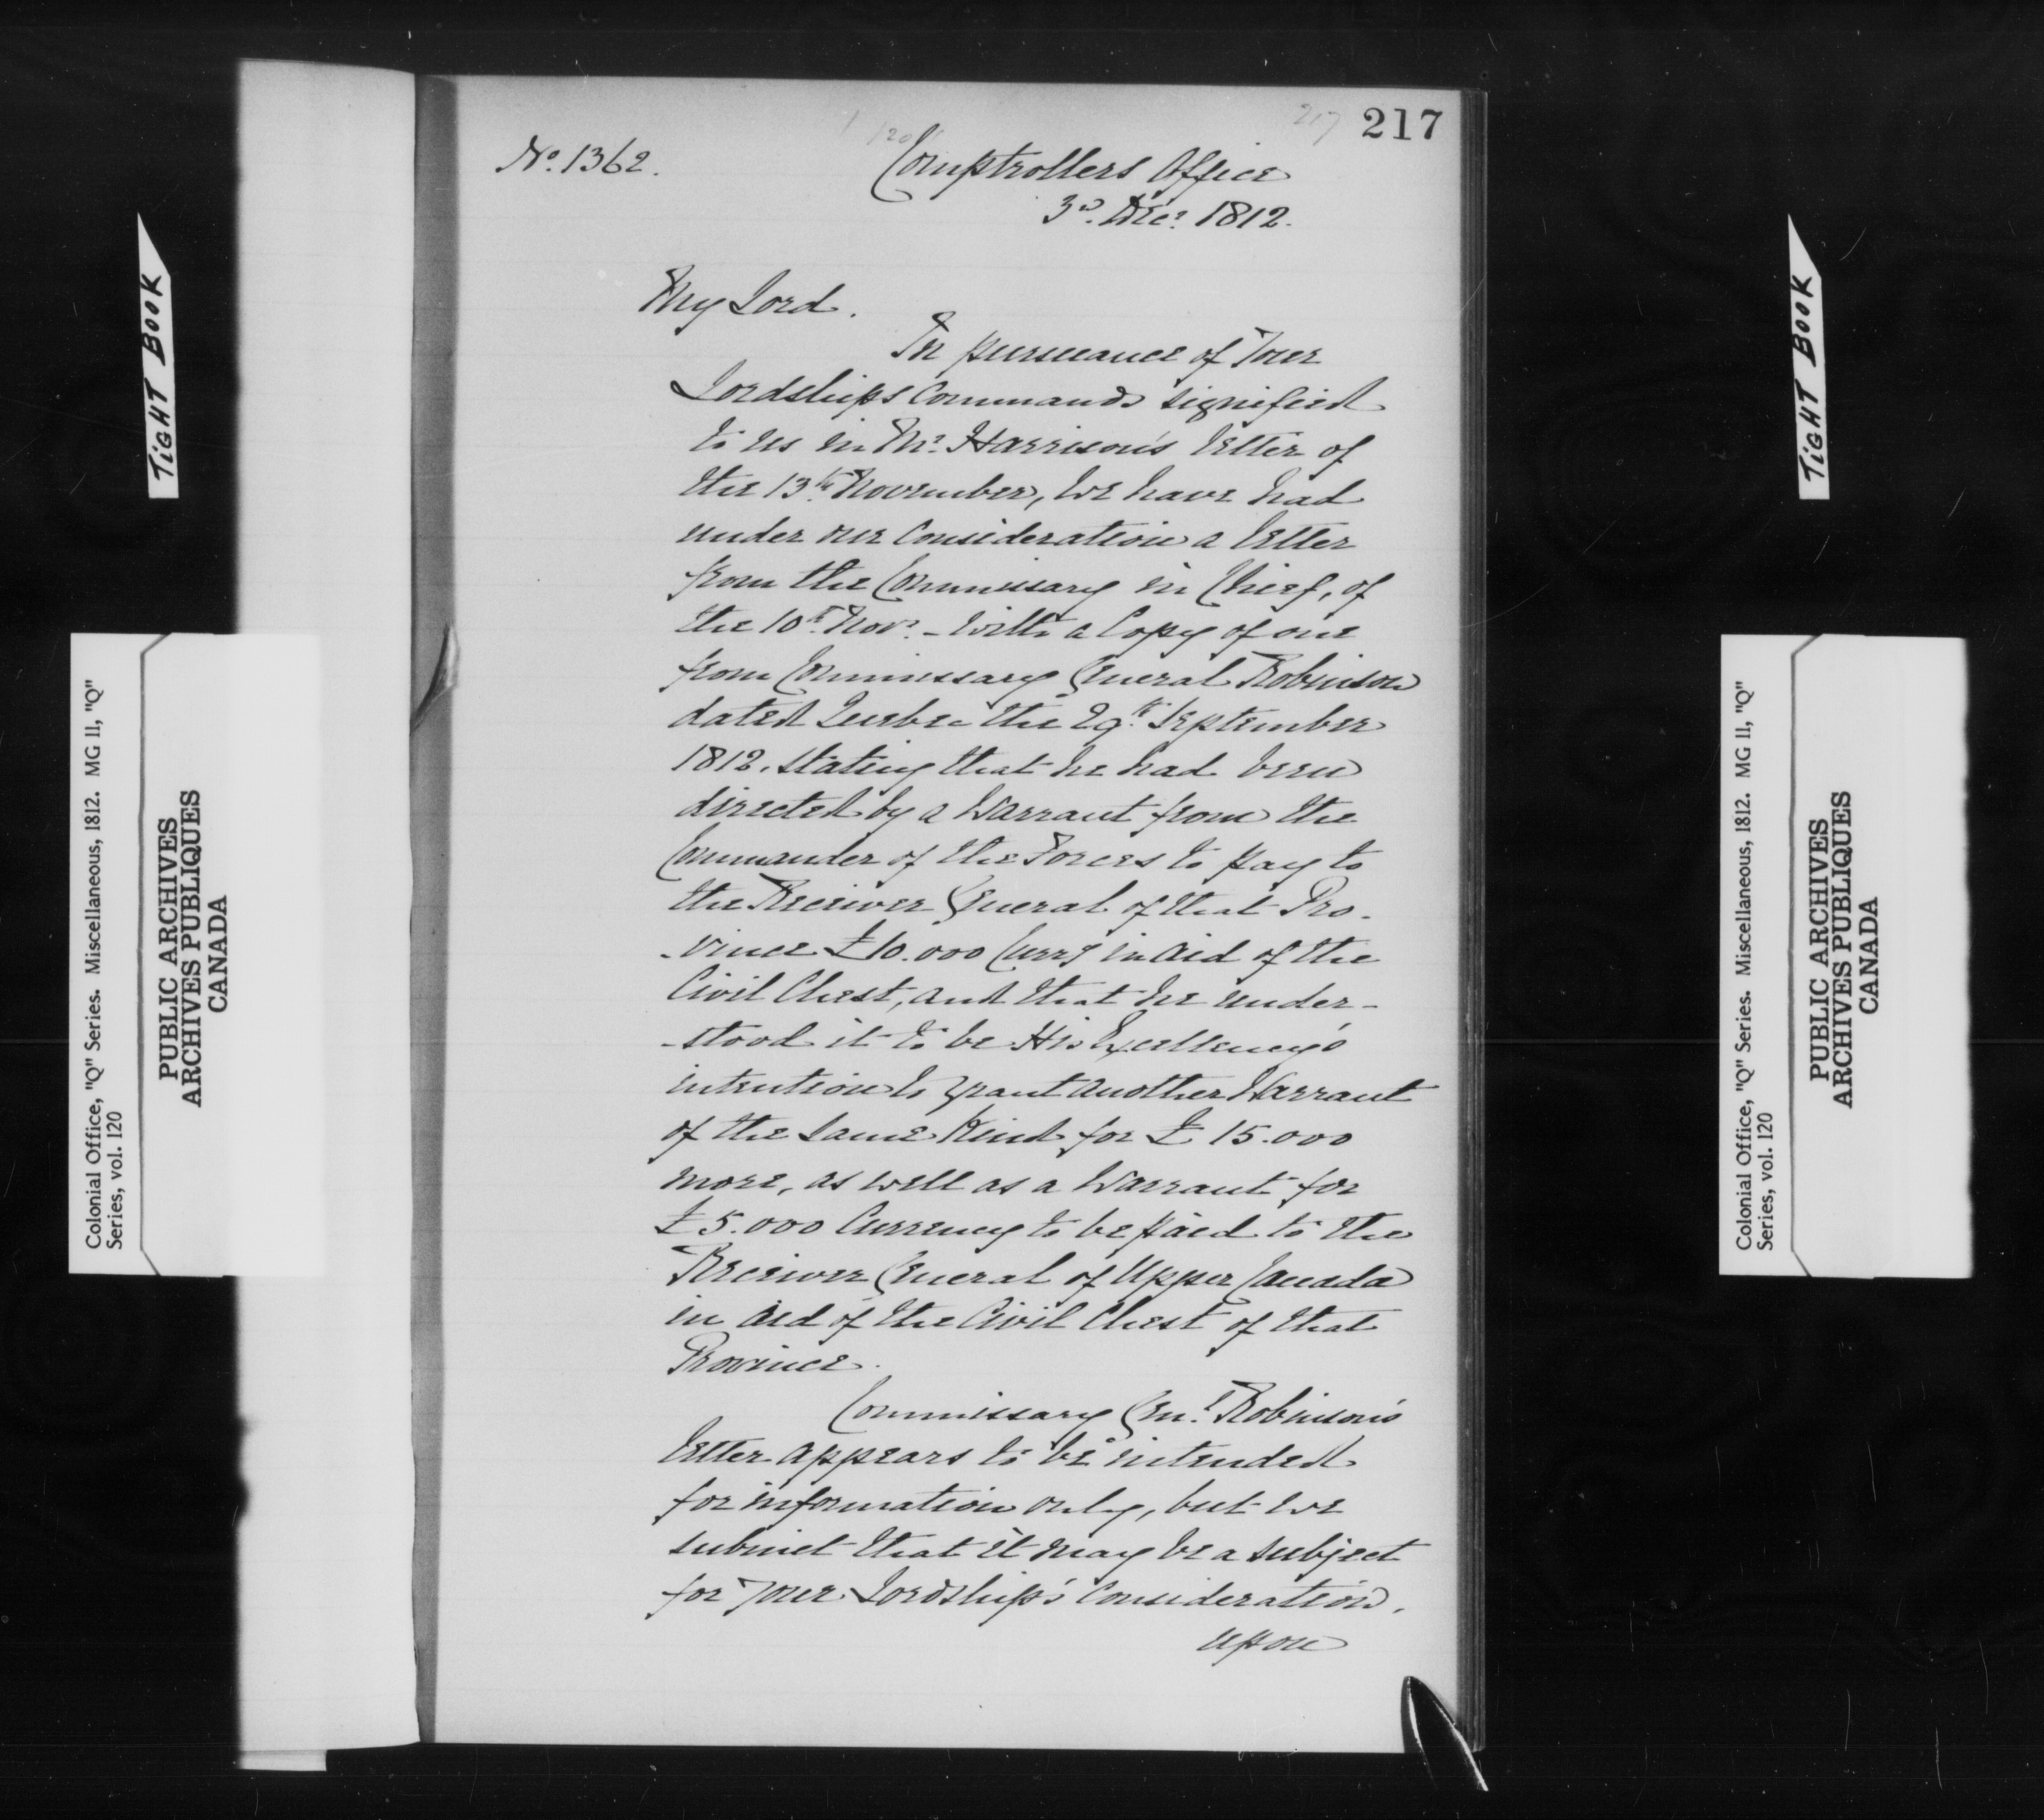 217
217
No. 1362.
Comptrollers Office
3d. Decr. 1812.
My Lord.
In pursuance of Your
Lordships Commands signified
to us in Mr. Harrison's letter of
the 13th November, we have had
under our Consideration a letter
from the Commissary in Chief, of
the 10th Novr. - with a Copy of one
from Commissary General Robinson
dated Quebec the 29th September
1812, stating that he had been
directed by a Warrant from the
Commander of the Forces to pay to
the Receiver General of that Pro-
-vince £10.000 Curry in aid of the
Civil Chest, and that he under-
-stood it to be His Excellency's
intention to grant another Warrant
of the same Kind for £ 15.000
more, as well as a Warrant for
£5.000 Currency to be paid to the
Receiver General of Upper Canada
in aid of the Civil Chest of that
Province.
Commissary Genl. Robinson's
letter appears to be intended
for information only, but we
submit that it may be a subject
for your Lordship's Consideration,
upon
TIGHT BOOK
Colonial Office, "Q" Series. Miscellaneous, 1812. MG 11, "Q"
Series, vol. 120
PUBLIC ARCHIVES
ARCHIVES PUBLIQUES
CANADA
TIGHT BOOK
Colonial Office, "Q" Series. Miscellaneous, 1812. MG 11, "Q"
Series, vol. 120
PUBLIC ARCHIVES
ARCHIVES PUBLIQUES
CANADA